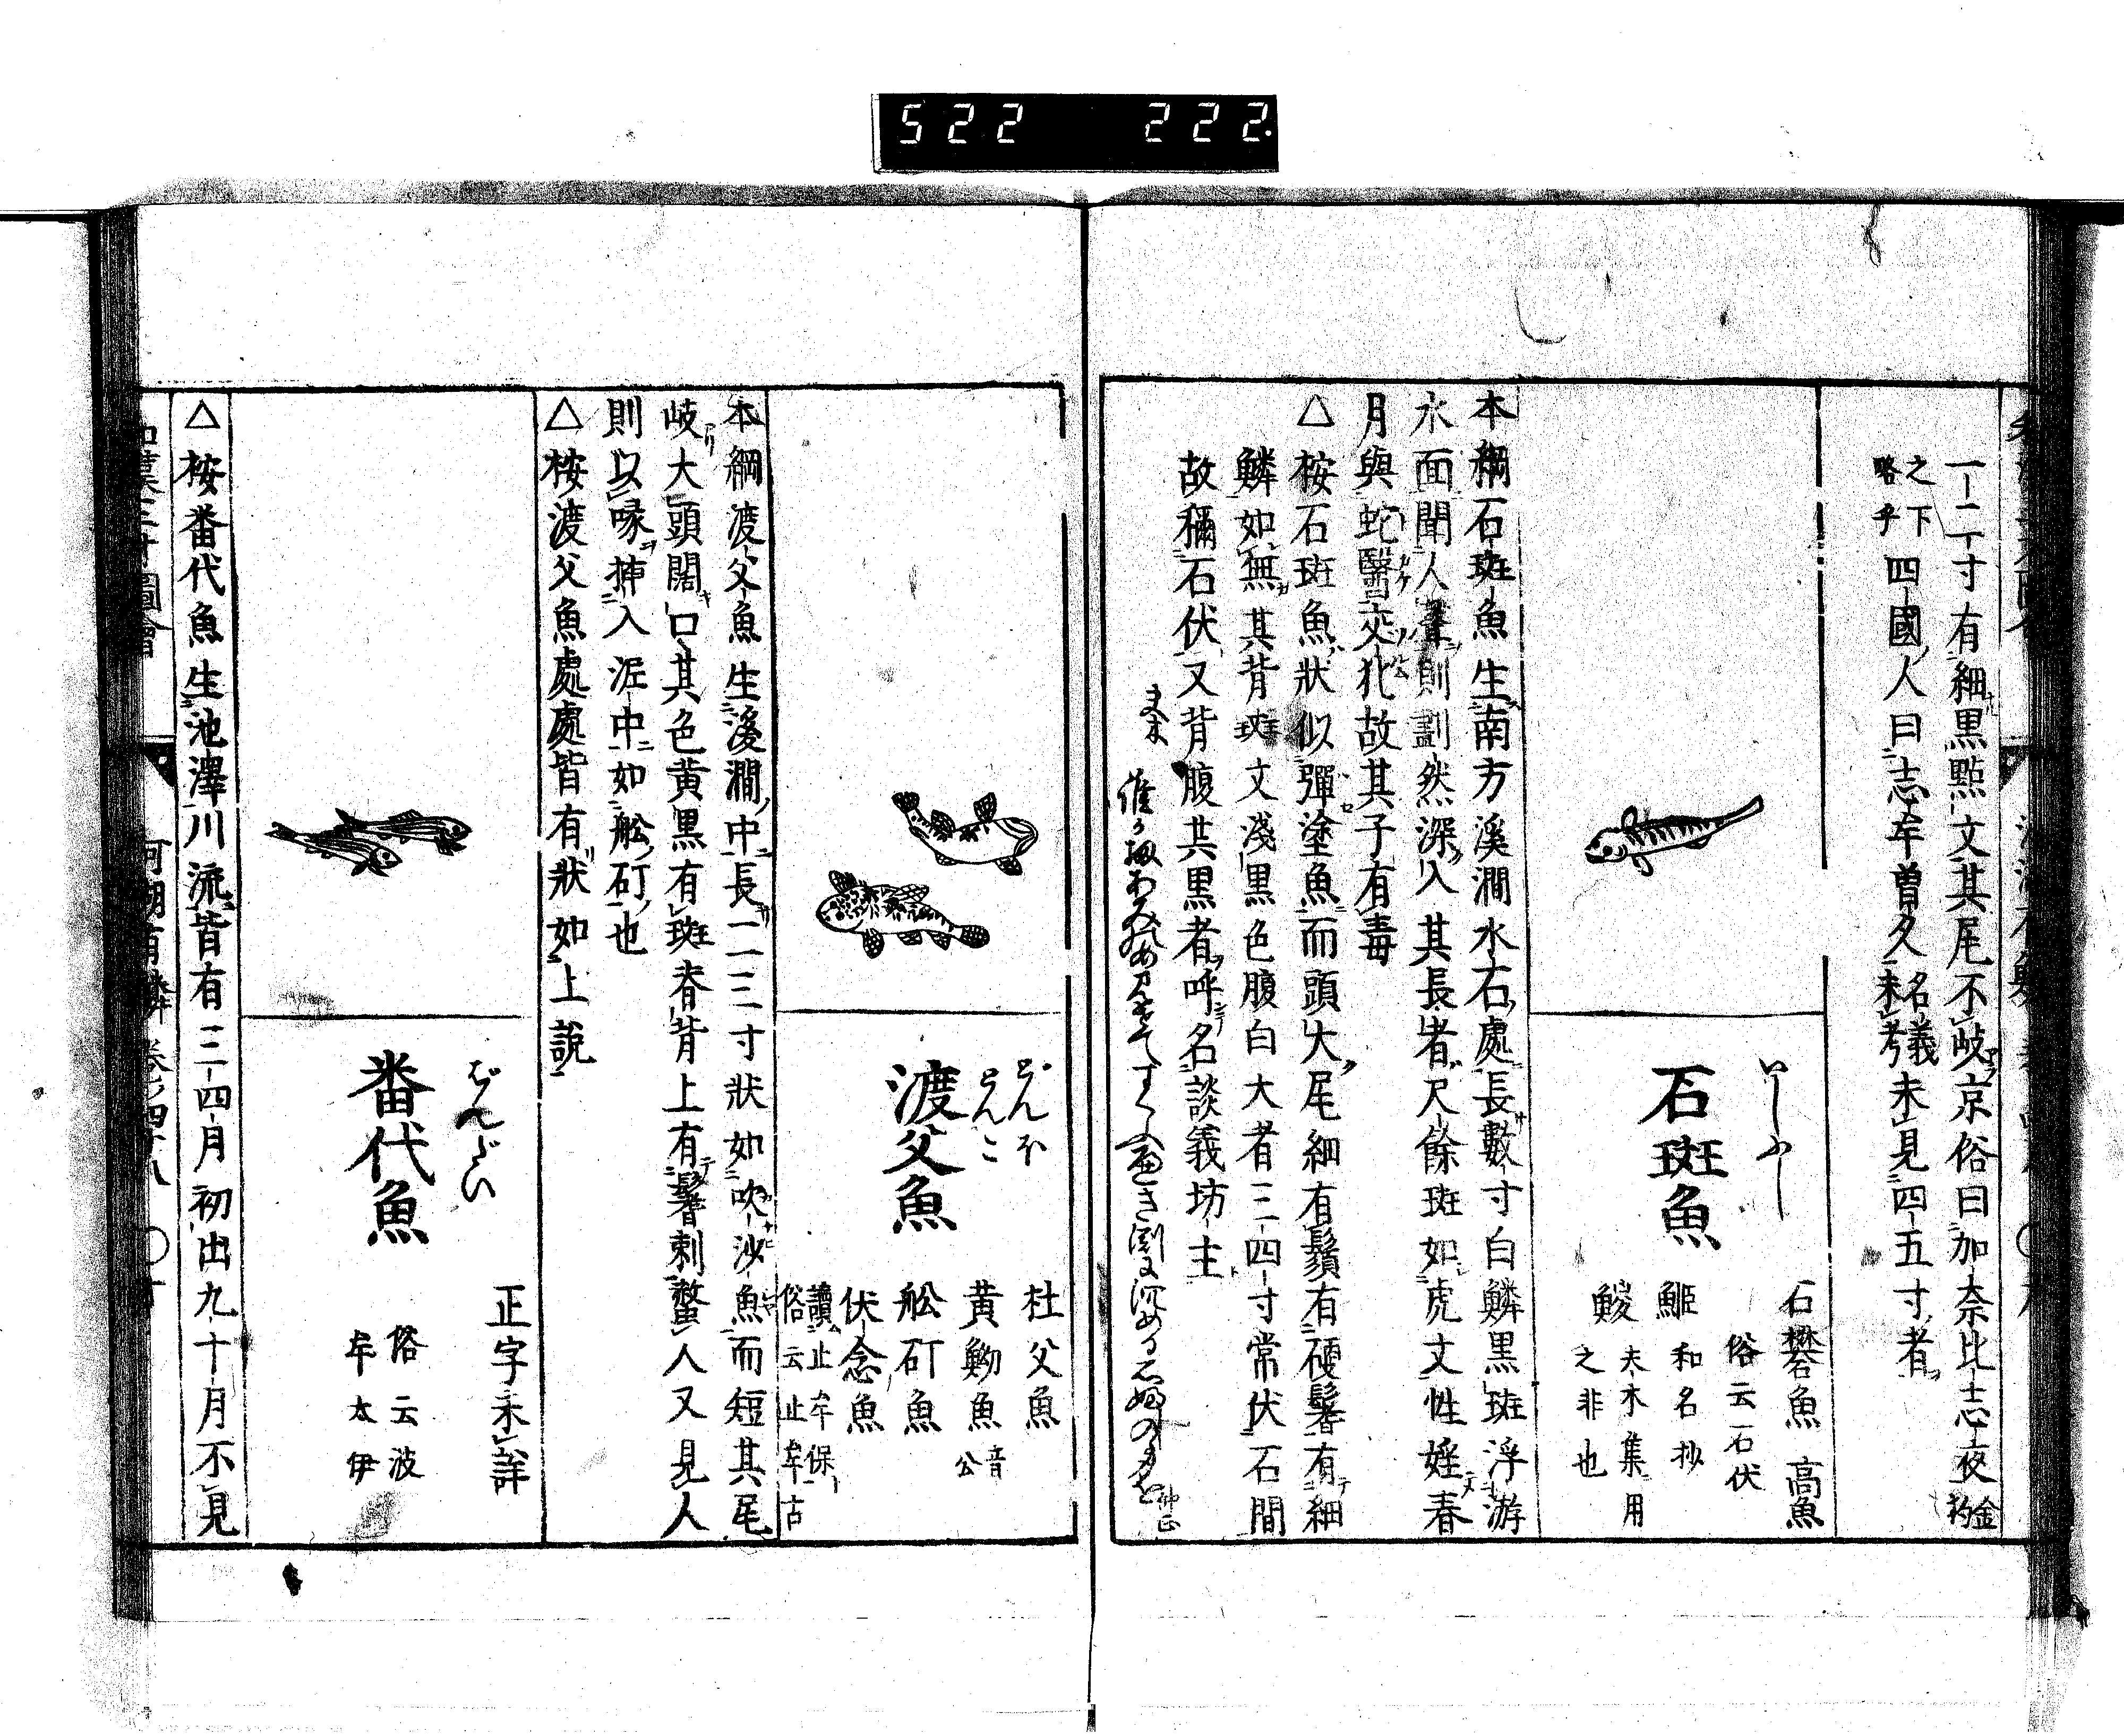 522 222.
一二寸有細黒點文其尾不岐京俗曰加奈比志夜
金杓
之下略乎
四國人曰志牟曽久
名義未考
未見四五寸者
石斑魚
石礬魚 高魚
俗云石伏
䱌 和名抄
鯼 夫木集用之非也
本綱石斑魚生南方溪澗水石處長數寸白鱗黒斑浮游
水面聞人聲則劃然深入其長者尺餘斑如虎文性婬春
月與蛇醫交牝故其子有毒
△桉石斑魚狀似彈塗魚而頭大尾細有鬚有硬鬐有細
鱗如無其背斑文淺黒色腹白大者三四寸常伏石間
故稱石伏又背腹共黒者呼名談義坊主
渡父魚
どんほ
どんこ
杜父魚
黄䱂魚 音公
舩矴魚
伏念魚
讀止牟保
俗云止牟古
本綱渡父魚生溪澗中長二三寸狀如吹沙魚而短其尾
岐大頭闊口其色黄黒有斑脊背上有鬐刺螫人又見人
則以喙挿入泥中如舩矴也
△桉渡父魚處處皆有狀如上說
番代魚
ばんだい
正字未詳
俗云波牟太伊
△桉番代魚生池澤川流皆有三四月初出九十月不見
和漢三才圖會 河湖有鱗 卷之四十八